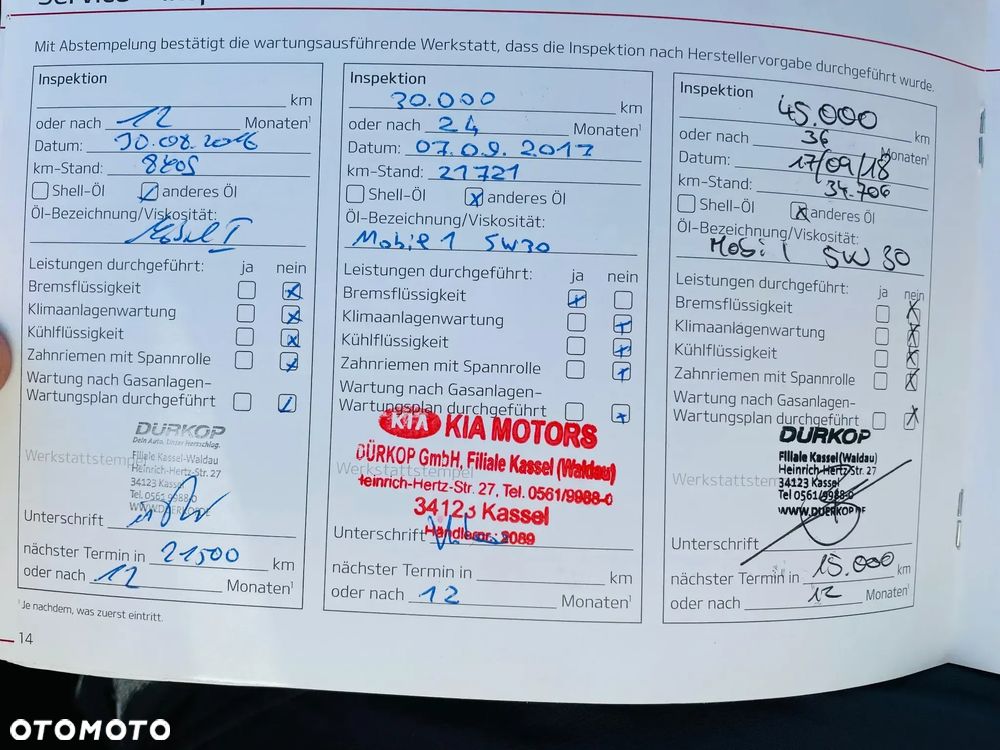 Mit Abstempelung bestätigt die wartungsausführende Werkstatt, dass die Inspektion nach Herstellervorgabe durchgeführt wurde.
Inspektion
km
oder nach 12 Monaten¹
Datum: 30.08.2016
km-Stand: 8405
Shell-Öl anderes Öl
Öl-Bezeichnung/Viskosität:
Leistungen durchgeführt: ja nein
Bremsflüssigkeit
Klimaanlagenwartung
Kühlflüssigkeit
Zahnriemen mit Spannrolle
Wartung nach Gasanlagen-
Wartungsplan durchgeführt
DÜRKOP
Dein Auto. Unser Herzschlag.
Werkstattstempel
Filiale Kassel-Waldau
Heinrich-Hertz-Str. 27
34123 Kassel
Tel. 0561 9988-0
WWW.DUERKOP.DE
Unterschrift
nächster Termin in 21500 km
oder nach 12 Monaten¹
¹ Je nachdem, was zuerst eintritt.
14
Inspektion
30.000 km
oder nach 24 Monaten¹
Datum: 07.09.2017
km-Stand: 21721
Shell-Öl x anderes Öl
Öl-Bezeichnung/Viskosität:
Mobil 1 5W30
Leistungen durchgeführt: ja nein
Bremsflüssigkeit
Klimaanlagenwartung
Kühlflüssigkeit
Zahnriemen mit Spannrolle
Wartung nach Gasanlagen-
Wartungsplan durchgeführt
KIA KIA MOTORS
DÜRKOP GmbH, Filiale Kassel (Waldau)
Werkstattstempel
Heinrich-Hertz-Str. 27, Tel. 0561/9988-0
34123 Kassel
Händlernr.: 2089
Unterschrift
nächster Termin in km
oder nach 12 Monaten¹
Inspektion
45.000 km
oder nach 36 Monaten¹
Datum: 17/09/18
km-Stand: 34.706
Shell-Öl x anderes Öl
Öl-Bezeichnung/Viskosität:
Mobil 5W30
Leistungen durchgeführt: ja nein
Bremsflüssigkeit
Klimaanlagenwartung
Kühlflüssigkeit
Zahnriemen mit Spannrolle
Wartung nach Gasanlagen-
Wartungsplan durchgeführt
DÜRKOP
Filiale Kassel (Waldau)
Werkstattstempel
Heinrich-Hertz-Str. 27
34123 Kassel
Tel 0561/9988-0
www.DUERKOP.DE
Unterschrift
nächster Termin in 15.000 km
oder nach 12 Monaten¹
OTOMOTO